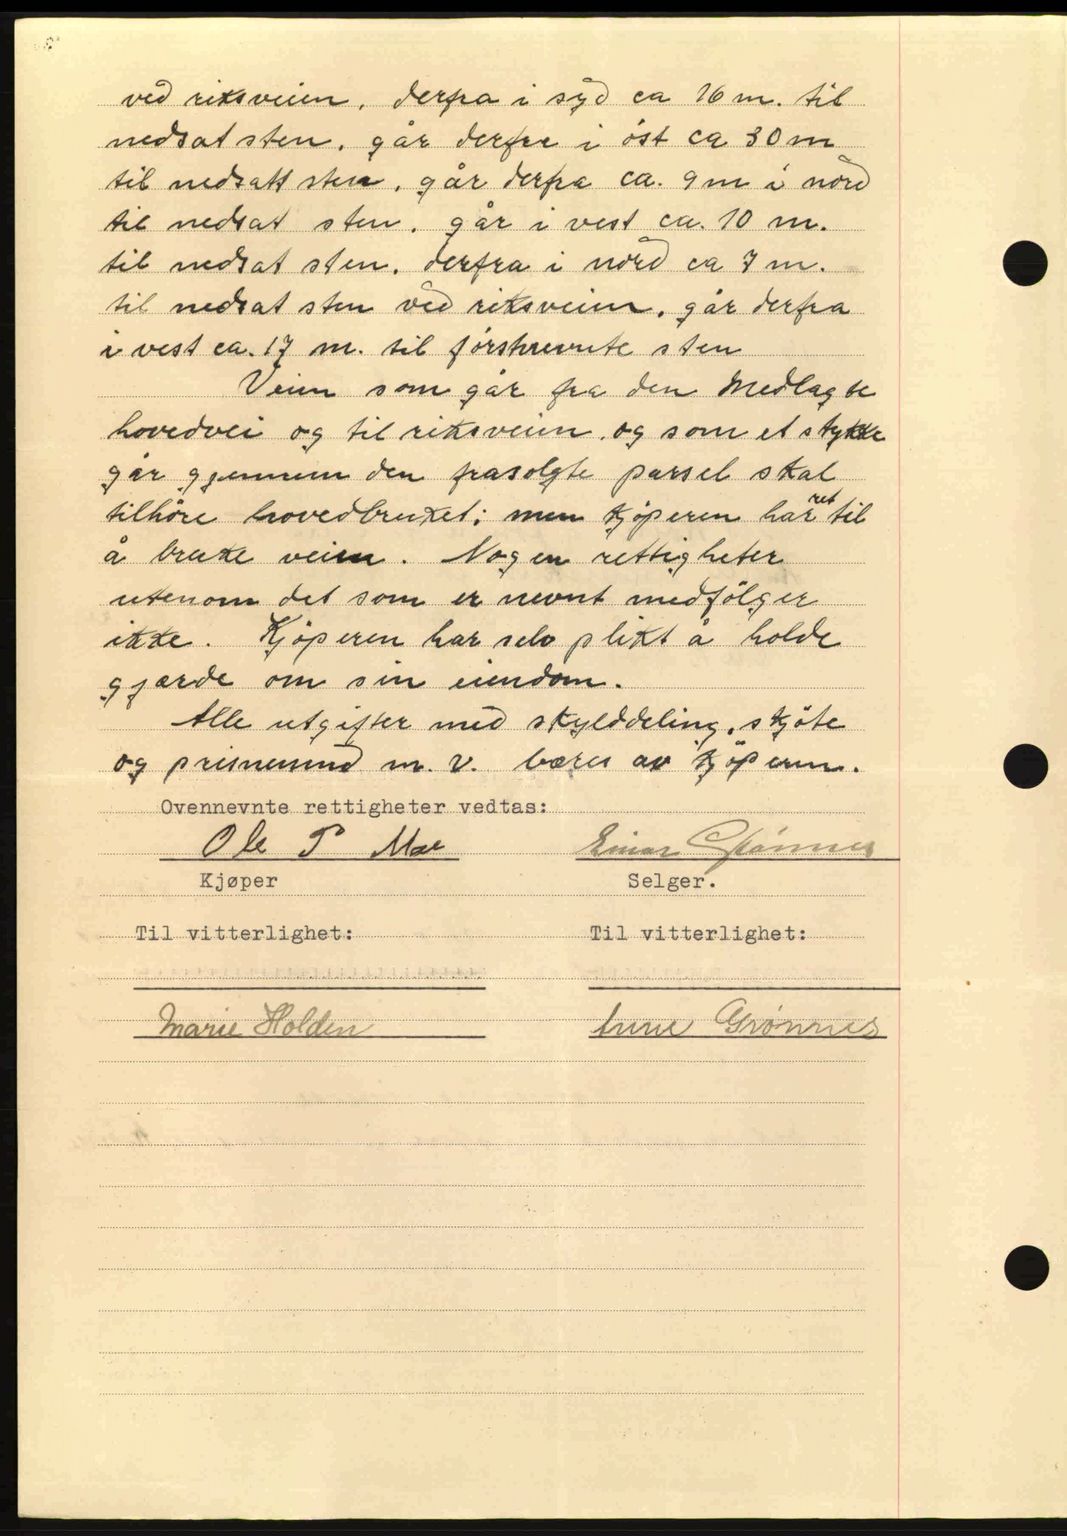 ved riksveien, derfra i syd ca 16 m. til
nedsat sten, går derfra i öst ca 30 m
til nedsatt sten, går derfra ca. 9 m i nord
til nedsat sten, går i vest ca. 10 m.
til nedsat sten, derfra i nord ca 7 m.
til nedsat sten ved riksveien, går derfra
i vest ca. 17 m. til förstnevnte sten
Veien som går fra den nedlagte
hovedvei og til riksveien, og som et stykke
går gjennem den frasolgte parsel skal
tilhöre hovedbruket; men kjöperen har ret til
å bruke veien. Nogen rettigheter
utenom det som er nevnt medfölger
ikke. Kjöperen har selv plikt å holde
gjærde om sin eiendom.
Alle utgifter med skylddeling, skjöte
og m. v. bæres av kjöperen.
Ovennevnte rettigheter vedtas:
Ole P Moe Einar Grønnes
Kjøper Selger.
Til vitterlighet: Til vitterlighet:
Marie Holden Anne Grønnes